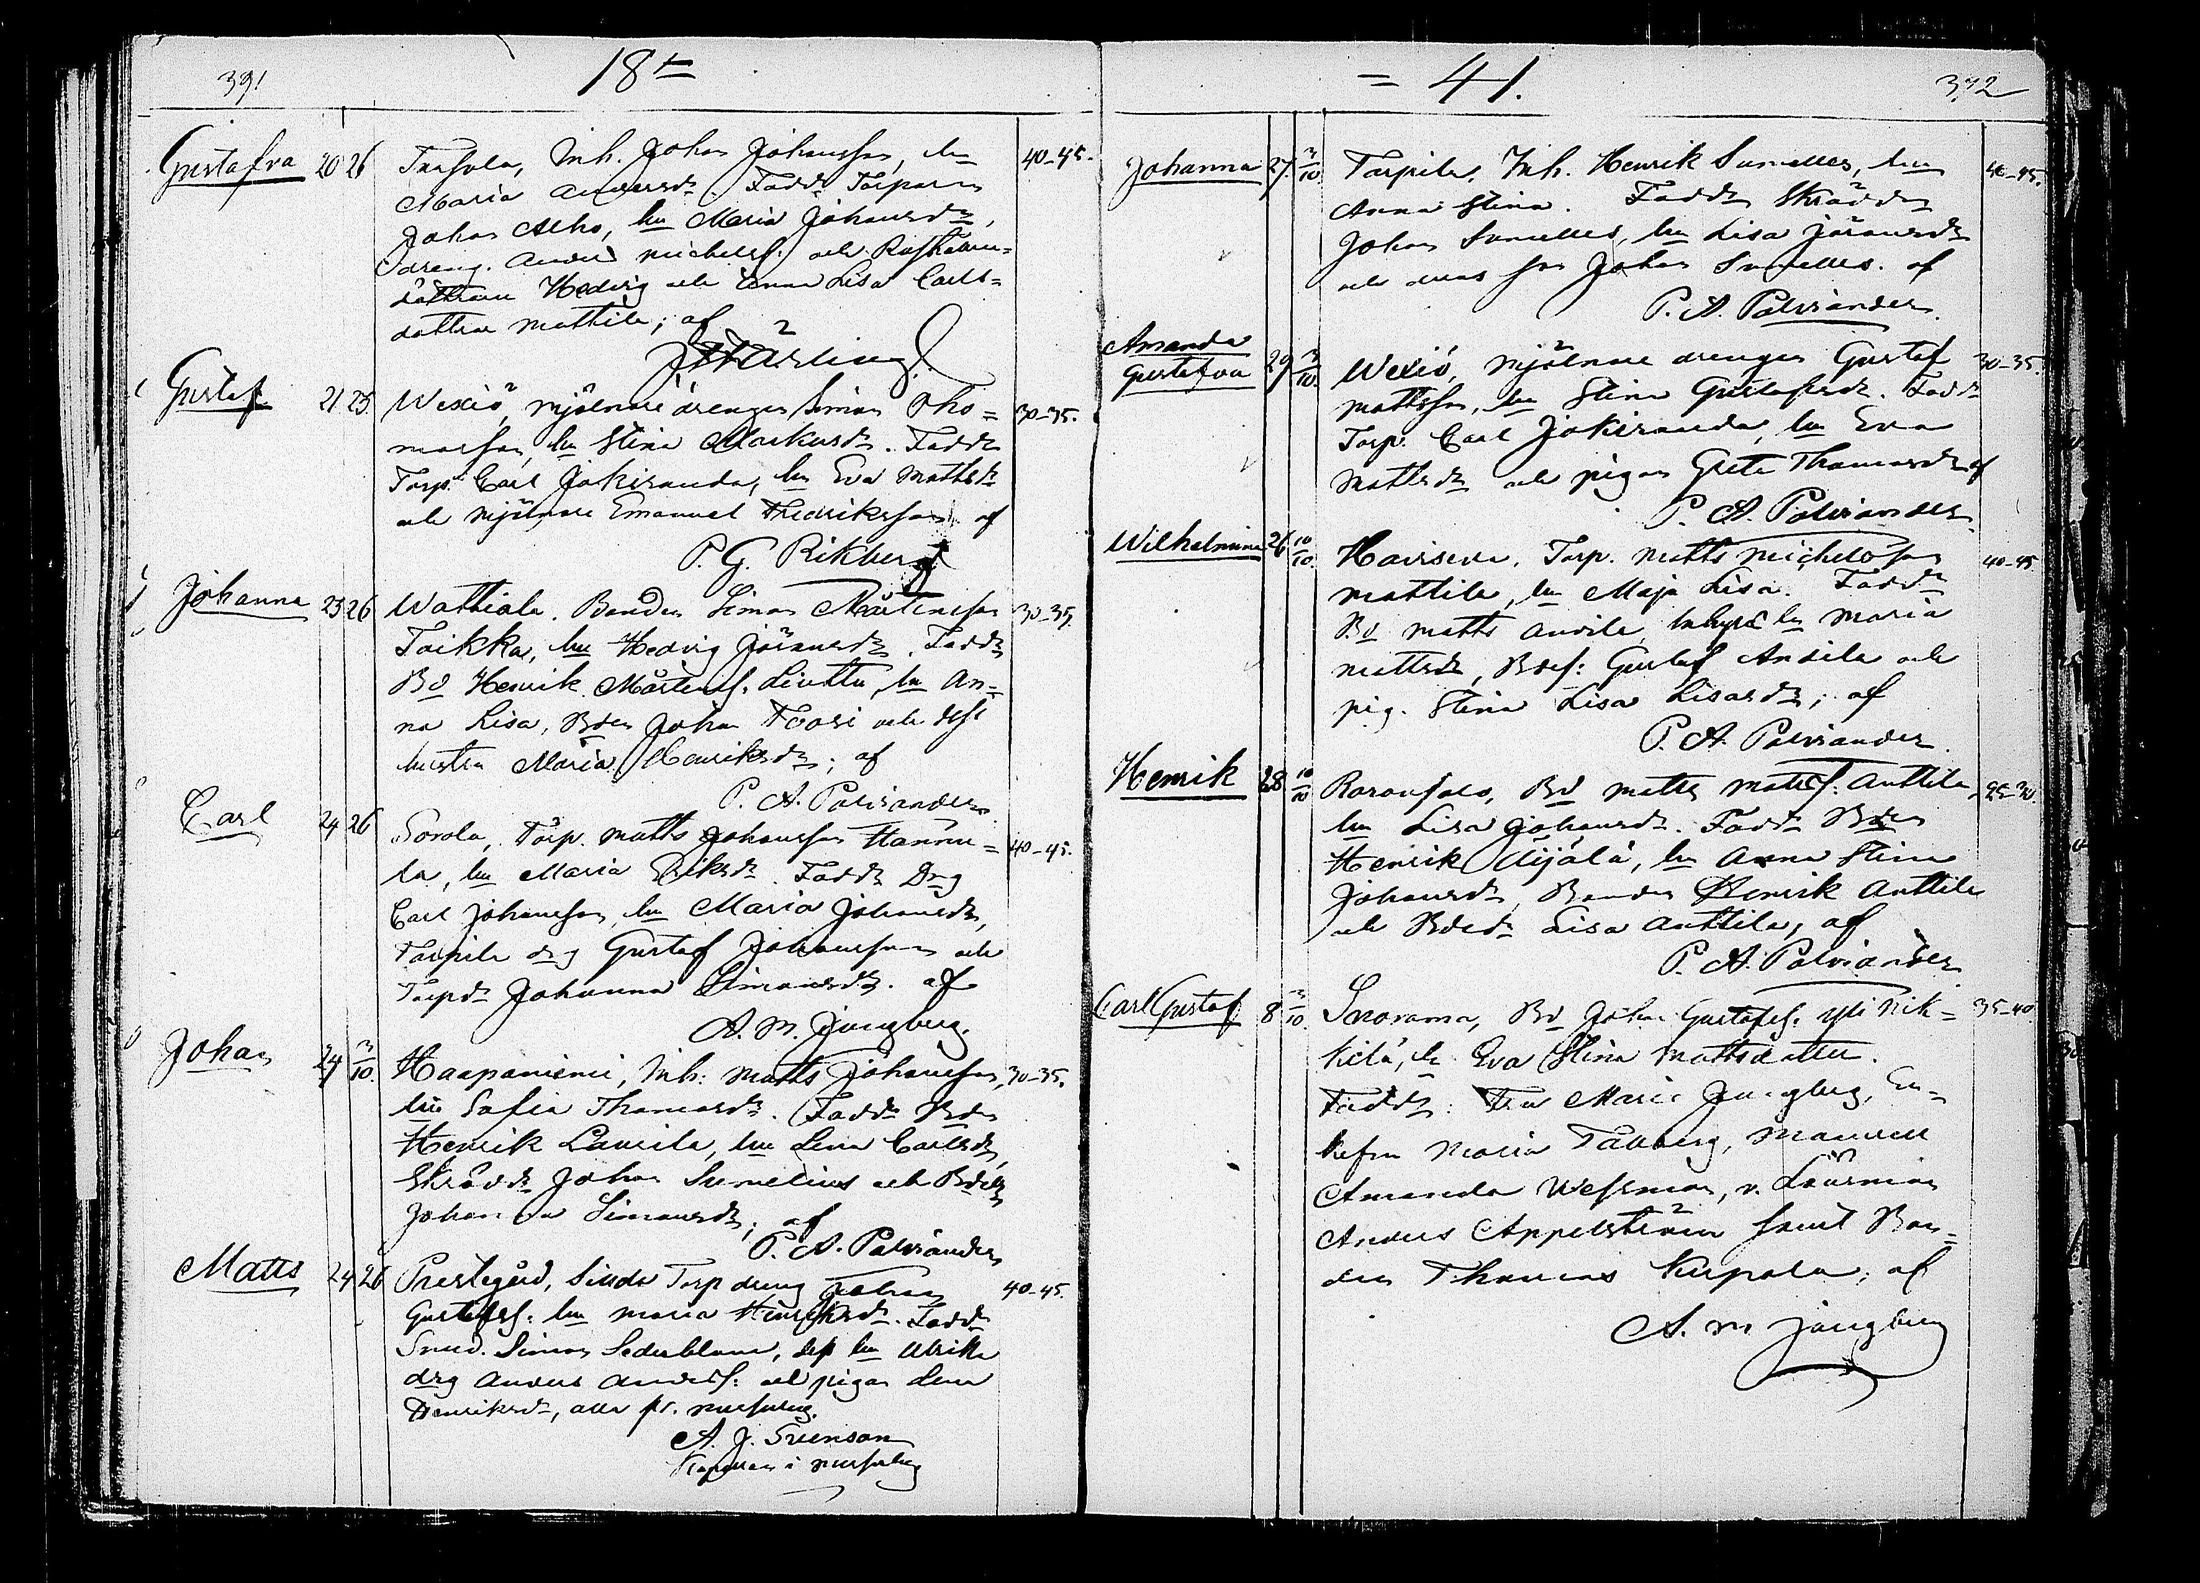 391
18
Gustafva 20 26 Inh. Johan Johansson, hu
Maria Andersdr. Faddr Torparen
Johan Alho, hu Maria Johansdr,
dreng. Anders Michelss. och
döttrarna Hedvig och Anna Lisa Carls=
döttrar Mattila; af
Gustaf 21 25 Wexiö, Mjölnare drengen Simon Tho= 30-35.
masson, hu Stina Markusdr. Faddr
Torp. Carl Jokiranda, hu Eva Mattsdr
och Mjölnare Emanuel Thedriksson af
P. G. Rikberg
Johanna 23 26 Wattiala. Bonden Simon Mårtensson 30-35.
Toikka, hu Hedvig Jöransdr. Faddr
Bd Henrik Mårtenss. Liuttu, hu An=
na Lisa, Bden Johan och dess
hustru Maria Henriksdr; af
P. A. Palviander
Carl 24 26 Sorola, Torp. Matts Johansson Hannu= 40-45.
la, hu Maria Eriksdr. Faddr Drg
Carl Johansson, hu Maria Johansdr,
Torpila drg Gustaf Johansson och
Torpdr Johanna Simonsdr. af
A. M. Jungberg.
Johan 24 3/10. Haapaniemi, Inh: Matts Johansson, 30-35.
hu Sofia Thomasdr. Faddr Bdn
Henrik Laurila, hu Lena Carlsdr,
Skrädd. Johan Sumelius och
Johanna Simonsdr; af
P. A. Palviander
Matts 24 26 Prestegård, Torp dreng Johan 40-45.
Gustafss. hu Maria Henriksdr. Faddr
Smed. Simon Sederblom, dess hu Ulrika
drg Anders Anderss: och pigan Lena
Henriksdr, alla fr.
A. J. Svenson
Kapellan i
= 41.
392
Johanna 27 3/10 Torpila, Inh. Henrik Sumelius, hu 40-45.
Anna Stina. Faddr Skräddn
Johan Sumelius, hu Lisa Jöransdr
och deras son Johan Sumelius. af
P. A. Palviander.
Amanda
Gustafva 29 3/10. Wexiö, Mjölnare drengen Gustaf 30-35.
Mattsson, hu Stina Gustafsdr. Faddr
Torp. Carl Jokiranda, hu Eva
Mattsdr och pigan Greta Thomasdr af
P. A. Palviander
Wilhelmina 26 10/10. Torp. Matts Michelsson 40-45
Mattila, hu Maja Lisa. Faddr
Bd Matts Anvila, hu Maria
Mattsdr, Bdes: Gustaf Anvila och
pig. Stina Lisa Lisasdr; af
P. A. Palviander.
Henrik 28 10/10 Bd Matts Mattss: Anttila, 25-30.
hu Lisa Johansdr. Faddr Bden
Henrik Äijälä, hu Anna Stina
Johansdr, Bonden Henrik Anttila
och Bdedr Lisa Anttila; af
P. A. Palviander
Carl Gustaf 8 3/10. Bd Johan Gustafss. Yli Nik= 35-40.
kilä, h. Eva Stina Mattsdotter.
Faddr: Fru Maria Jungberg, En=
kefru Maria Tallberg, Mamsell
Amanda Wessman, v. Länsman
Anders Appelström samt Bon=
den Thomas Kurpala; af
A. M Jungberg